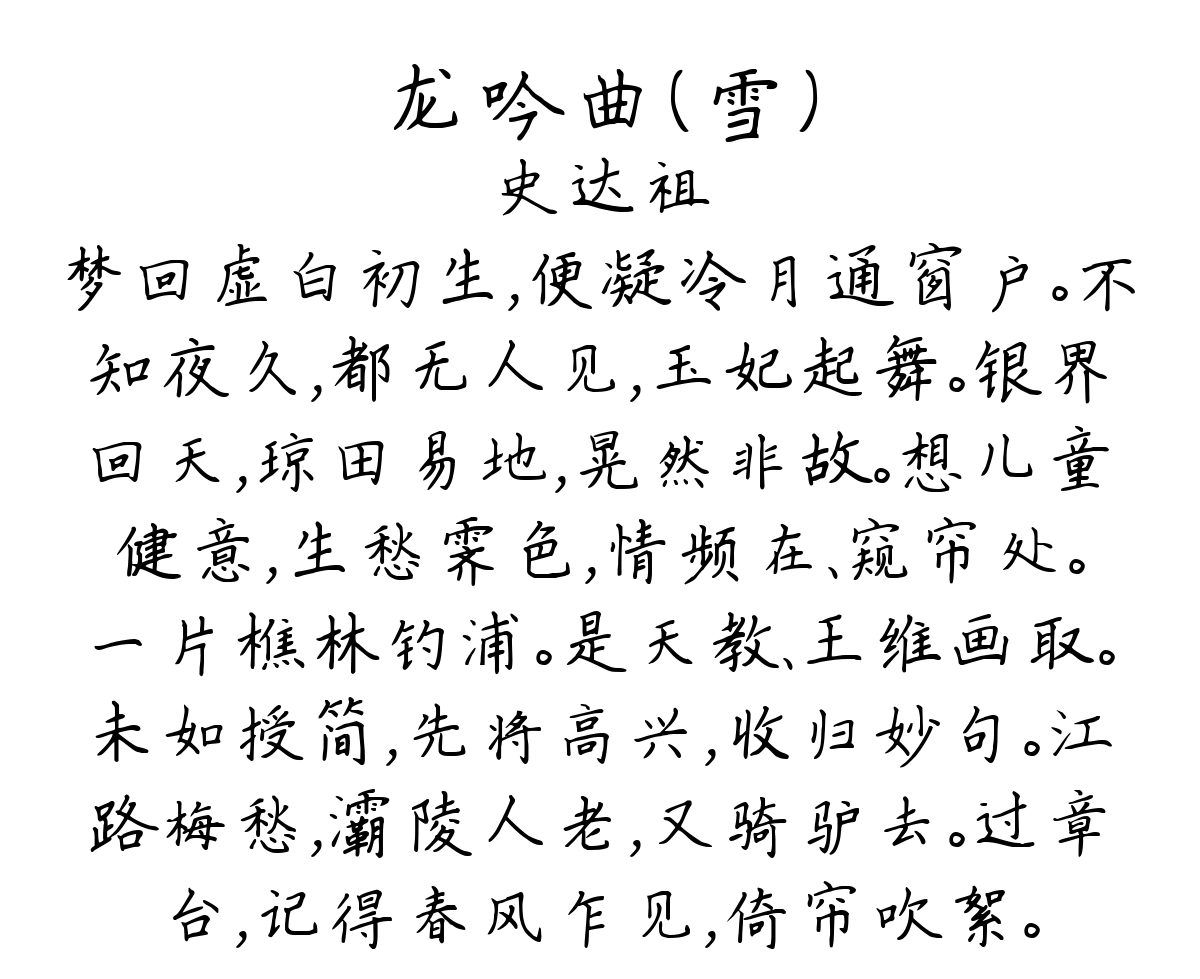 龙吟曲(雪)
史达祖
梦回虚白初生,便凝冷月通窗户。不
知夜久,都无人见,玉妃起舞。银界
回天,琼田易地,晃然非故。想儿童
健意,生愁霁色,情频在、窥帘处。
一片樵林钓浦。是天教、王维画取。
未如授简,先将高兴,收归妙句。江
路梅愁,灞陵人老,又骑驴去。过章
台,记得春风乍见,倚帘吹絮。